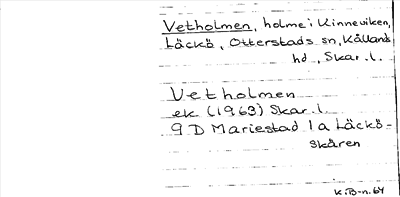 Vetholmen, holme i Kinneviken,
Läckö, Otterstads sn, Kållands
hd, Skar.l.
Vetholmen
ek (1963) Skar.l.
9 D Mariestad 1 a Läckö-
skären
K.B-n. 64